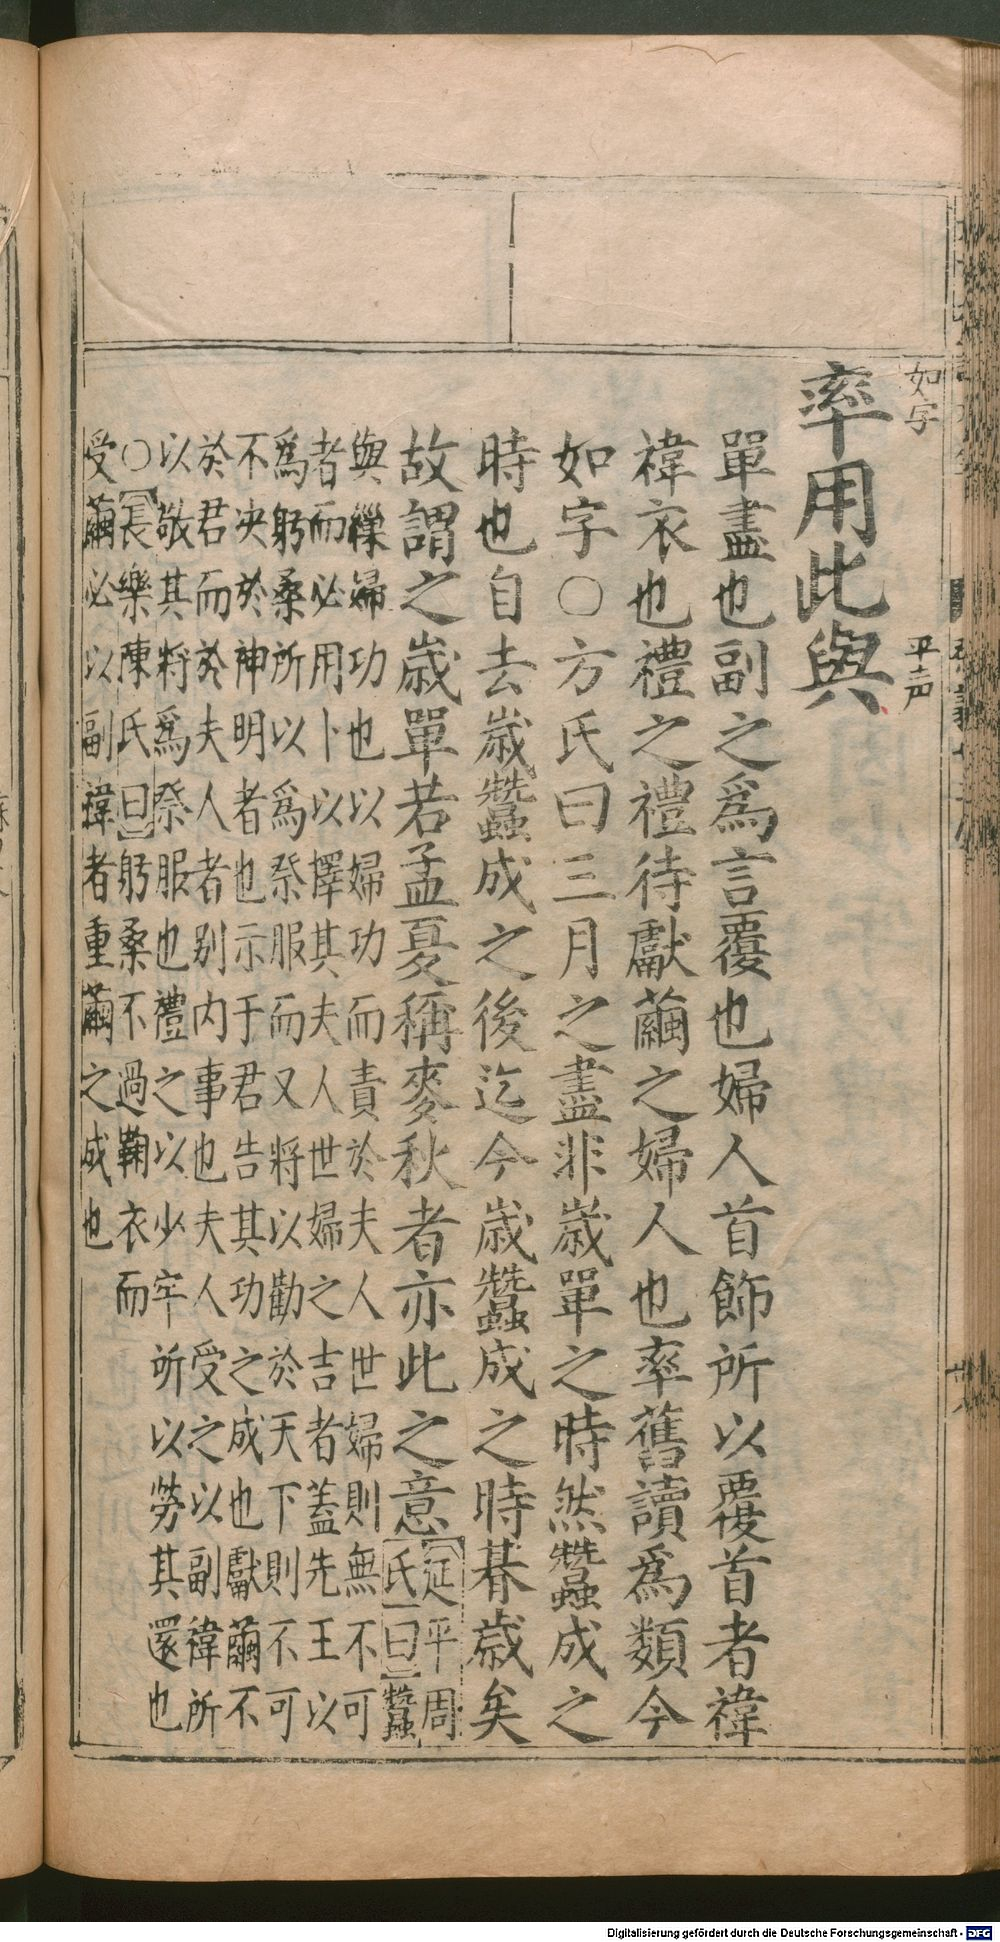 率用此與
如字
平声
單盡也副之爲言覆也婦人首飾所以覆首者褘
褘衣也禮之禮待獻繭之婦人也率舊讀爲類今
如字○方氏曰三月之盡非歲單之時然蠶成之
時也自去歲蠶成之後迄今歲蠶成之時朞歲矣
故謂之歲單若孟夏稱麥秋者亦此之意延平周
氏曰蠶
與繅婦功也以婦功而責於夫人世婦則無不可
者而必用卜以擇其夫人世婦之吉者蓋先王以
爲躬桑所以爲祭服而又將以勸於天下則不可
不决於神明者也示于君告其功之成也獻繭不
於君而於夫人者别内事也夫人受之以副褘所
以敬其將爲祭服也禮之以少牢所以勞其還也
○長樂陳氏曰躬桑不過鞠衣而
受繭必以副褘者重繭之成也
Digitalisierung gefördert durch die Deutsche Forschungsgemeinschaft - DFG